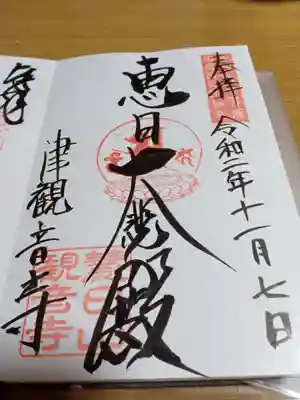 奉拝 令和二年十一月七日
恵日大悲殿
津観音寺
慧日山
観音寺